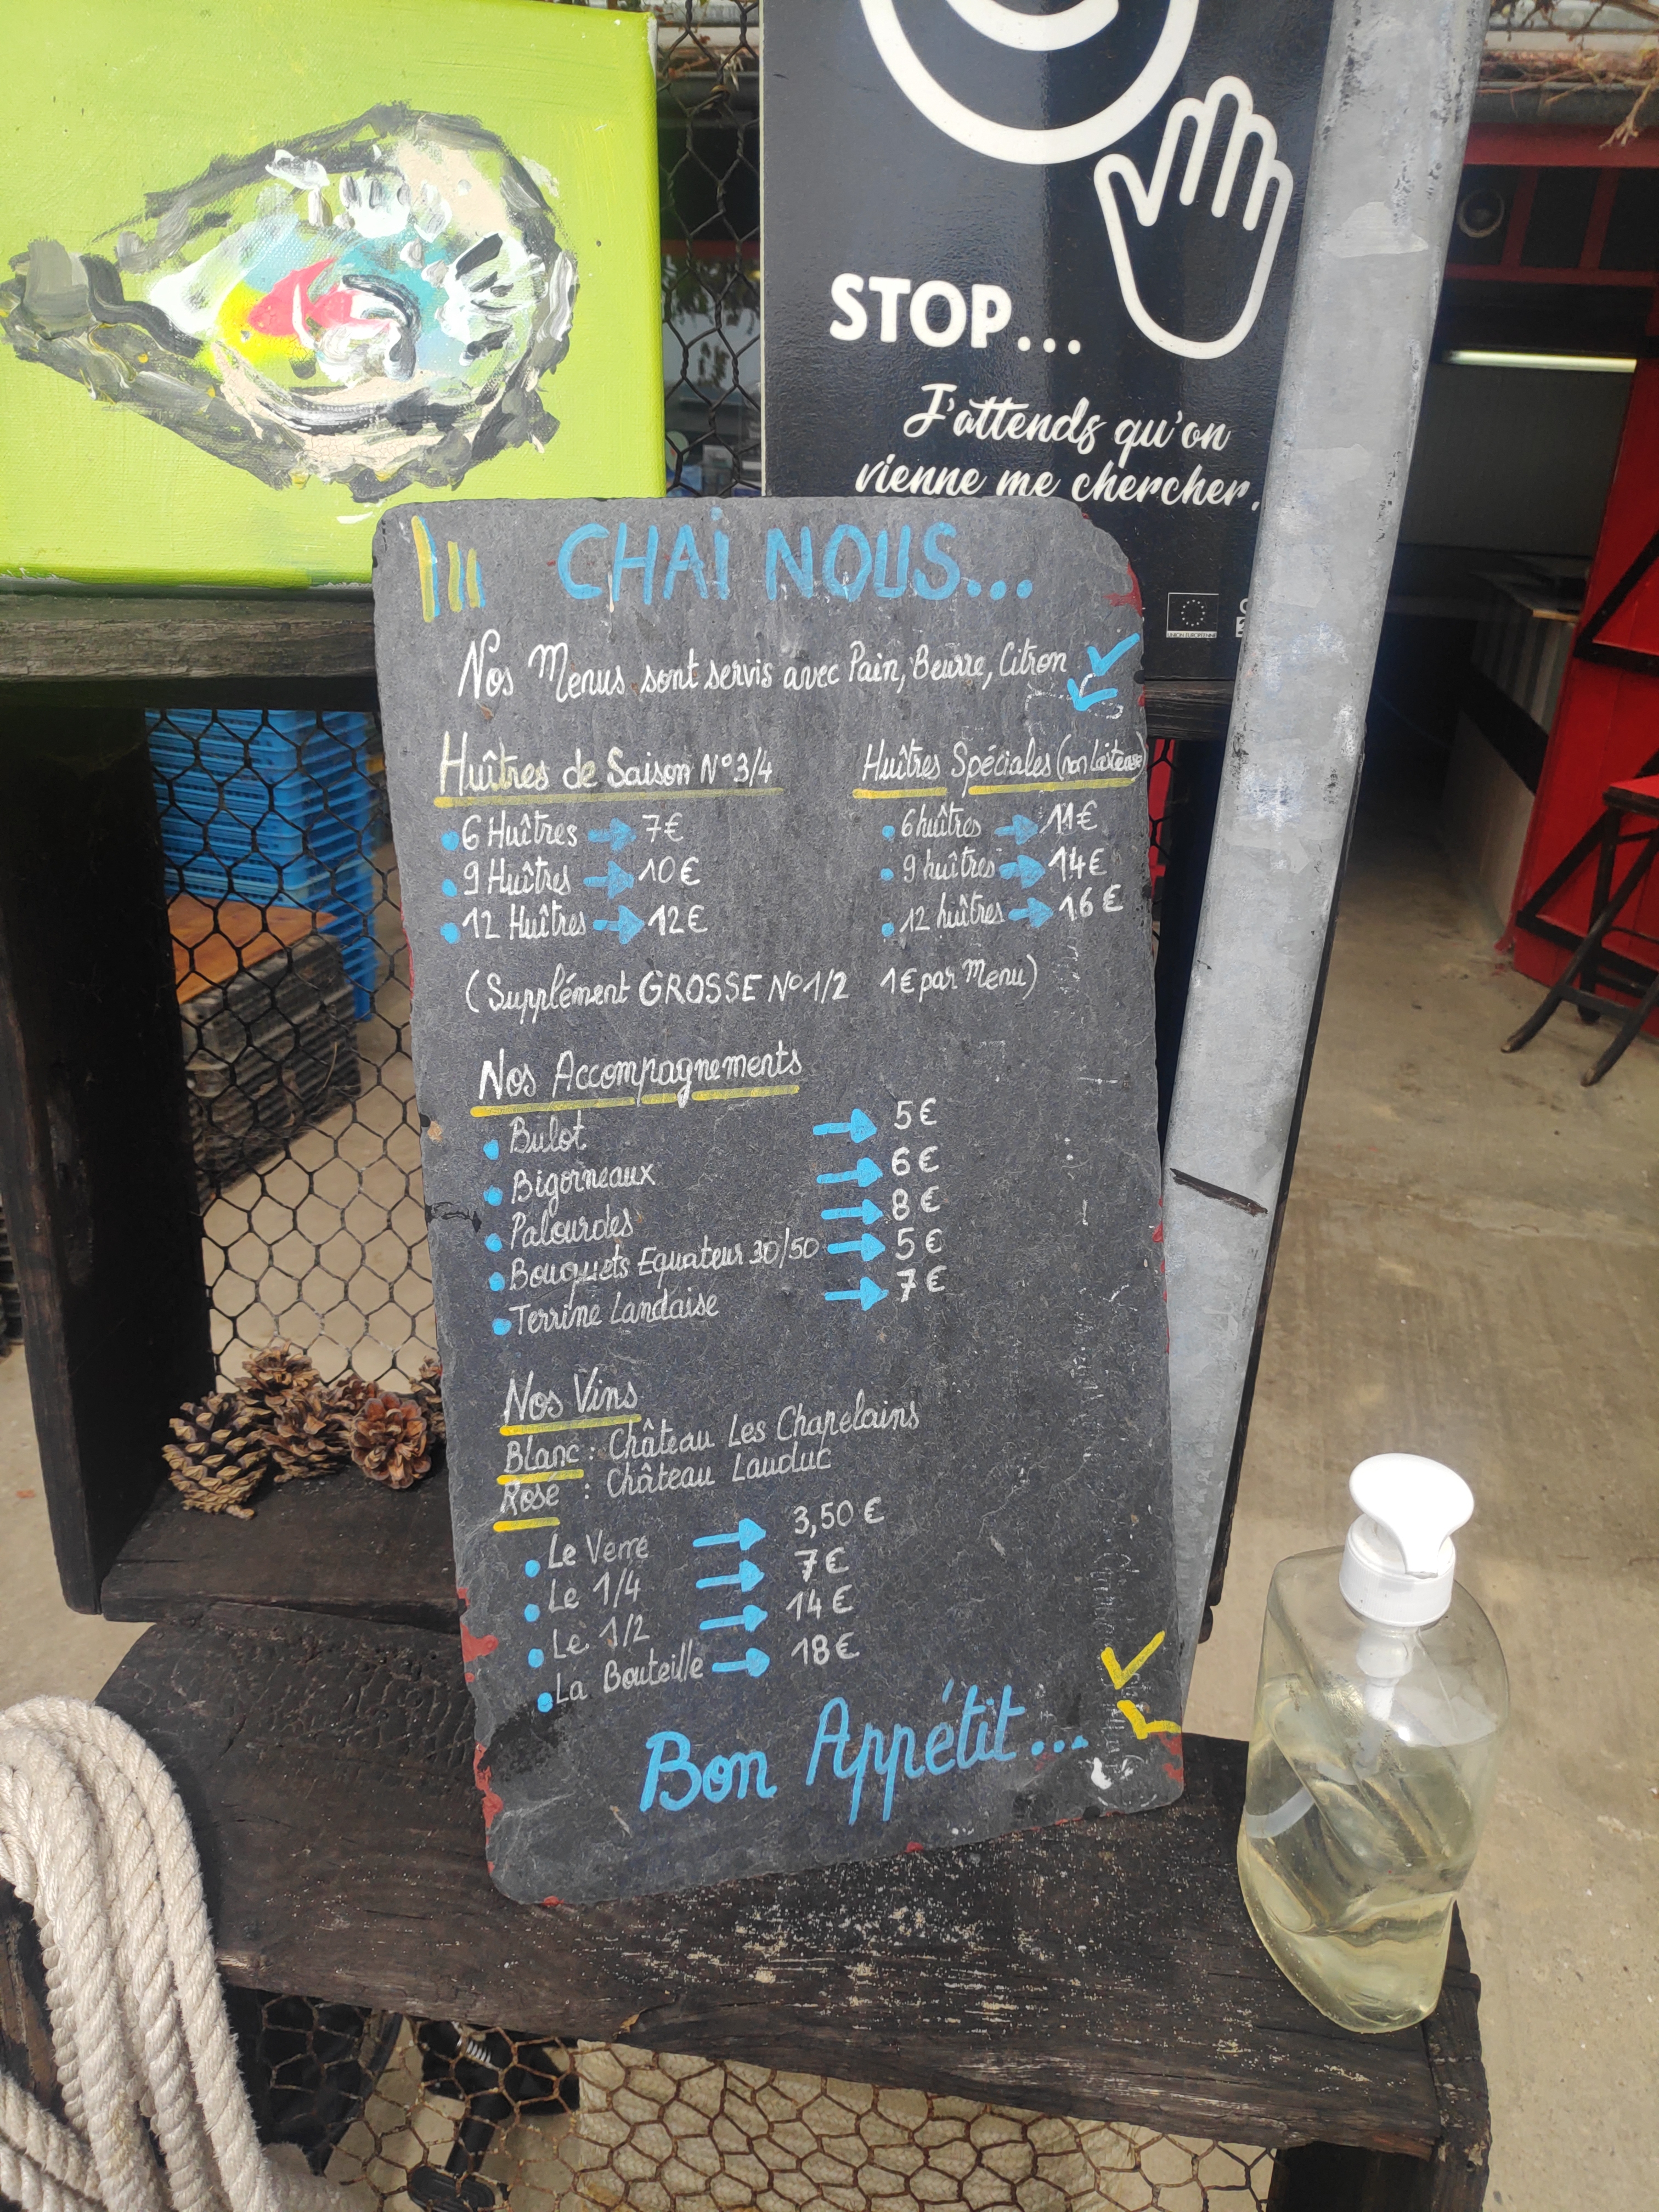 STOP...
J'attends qu'on
vienne me chercher.
UNION EUROPÉENNE
CHAI NOUS...
Nos Menus sont servis avec Pain, Beurre, Citron
Huîtres de Saison N°3/4
6 Huîtres 7€
9 Huîtres 10€
12 Huîtres 12€
Huîtres Spéciales (non laiteuse)
6 huîtres 11€
9 huîtres 14€
12 huîtres 16€
(Supplément GROSSE N°1/2 1€ par Menu)
Nos Accompagnements
Bulot 5€
Bigorneaux 6€
Palourdes 8€
Bouquets Equateur 30/50 5€
Terrine Landaise 7€
Nos Vins
Blanc : Château Les Chapelains
Rosé : Château Lauduc
Le Verre 3,50€
Le 1/4 7€
Le 1/2 14€
La Bouteille 18€
Bon Appétit...